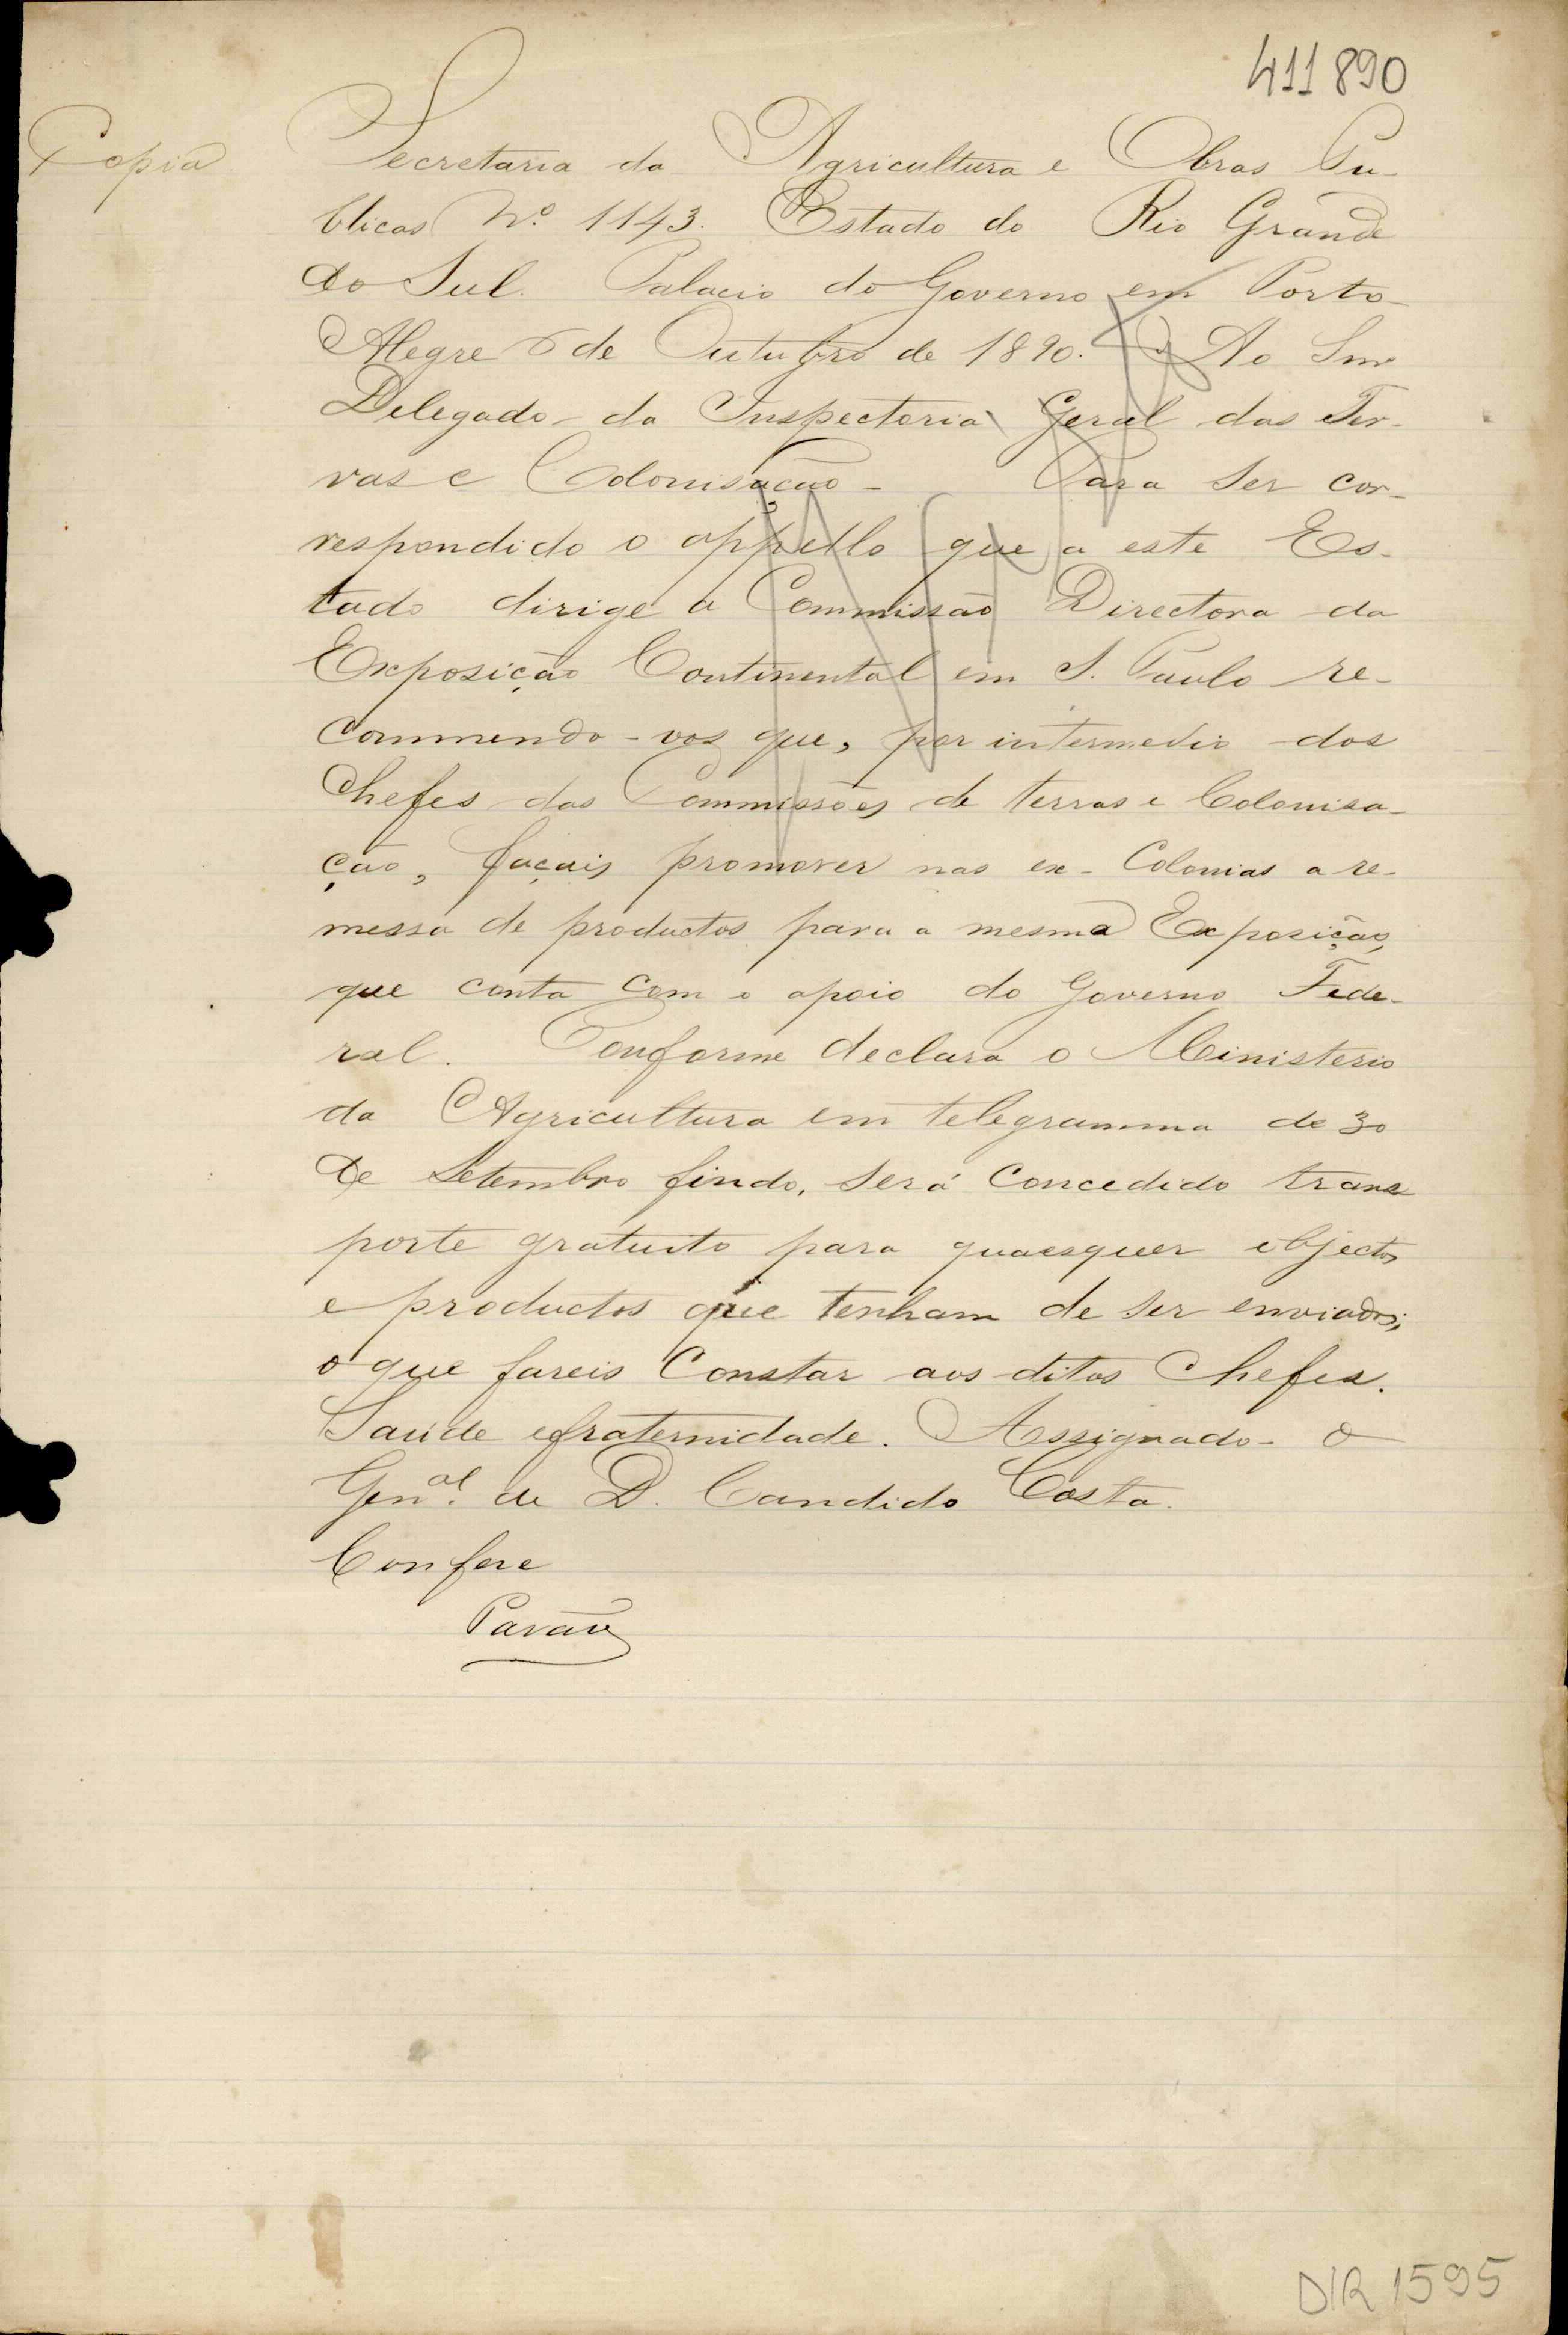 411890
Copia
Secretaria da Agricultura e Obras Pu-
blicas Nº 1143. Estado do Rio Grande
do Sul. Palacio do Governo em Porto
Alegre 6 de Outubro de 1890. Ao Snr
Delegado da Inspectoria Geral das Ter-
ras e Colonisação - Para ser cor-
respondido o appello que a este Es-
tado dirige a Commissão Directora da
Exposição Continental em S. Paulo re-
commendo-vos que, por intermedio dos
Chefes das Commissões de terras e Colonisa-
ção, façais promover nas ex-Colonias a re-
messa de productos para a mesma Exposição,
que conta com o apoio do Governo Fede-
ral. Conforme declara o Ministerio
da Agricultura em telegramma de 30
de Setembro findo, será concedido trans
porte gratuito para quaesquer objectos
e productos que tenham de ser enviados;
o que fareis constar aos ditos Chefes.
Saúde e fraternidade. Assignado - O
Genal. de D. Candido Costa.
Confere
DIR 1595